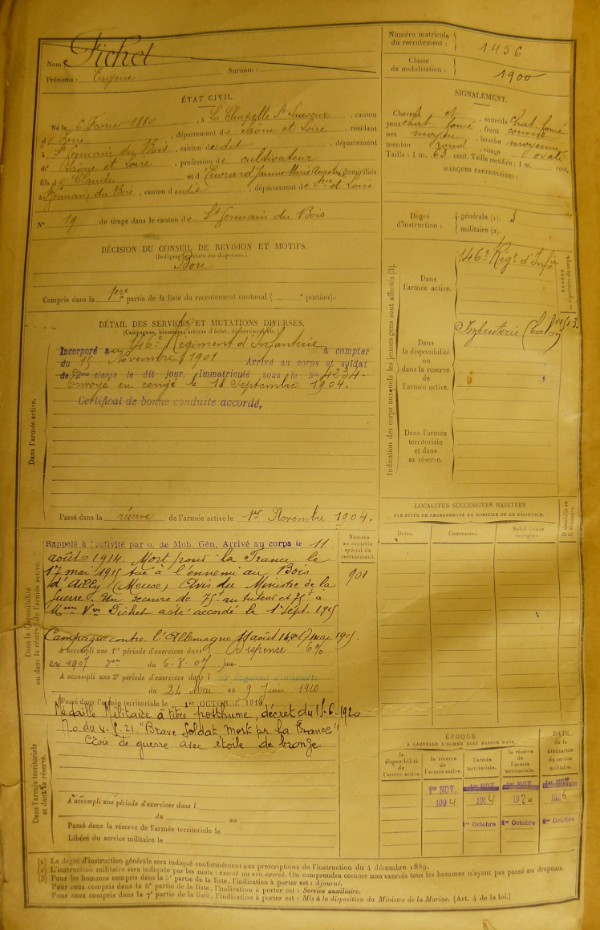 Nom : Fichet
Prénoms : Eugène Surnoms :
Numéro matricule du recrutement : 1456
Classe de mobilisation : 1900
ÉTAT CIVIL.
Né le 6 Février 1880, à La Chapelle St Sauveur, canton
de Pierre, département de Saône et Loire, résidant
à St Germain du Bois, canton de dit, département
de Saône et Loire, profession de cultivateur
fils de Claude et d'Evrard Jeanne Marie, domiciliés
à St Germain du Bois, canton du dit, département de Sne et Loire
N° 19 de tirage dans le canton de St Germain du Bois
SIGNALEMENT.
Cheveux et sourcils chat. foncé
yeux chat foncé, front couvert
nez moyen, bouche moyenne
menton rond, visage ovale
Taille : 1 m. 63 cent. Taille rectifiée : 1 m. cent.
MARQUES PARTICULIÈRES :
Degré d'instruction : générale (1) : 3
militaire (2) :
DÉCISION DU CONSEIL DE RÉVISION ET MOTIFS.
Bon
Compris dans la 1ère partie de la liste du recrutement cantonal ( e portion).
DÉTAIL DES SERVICES ET MUTATIONS DIVERSES.
Incorporé au 146e Régiment d'Infanterie à compter
du 15 Novembre 1901 Arrivé au corps et soldat
de 2me classe le dit jour, immatriculé sous le No 4234
Envoyé en congé le 18 Septembre 1904.
Certificat de bonne conduite accordé,
Passé dans la réserve de l'armée active le 1er Novembre 1904.
Dans l'armée active.
Indication des corps auxquels les jeunes gens sont affectés (3).
Dans l'armée active.
146e Régt d'Infie
Dans la disponibilité ou dans la réserve de l'armée active.
Infanterie Chalon
Dans l'armée territoriale et dans sa réserve.
Rappelé à l'activité par o. de Mob. Gén. Arrivé au corps le 11
août 1914. Mort pour la France le
17 mai 1915 tué à l'ennemi au Bois
d'Ailly (Meuse) Avis du Ministre de la
Guerre. Un secours de 75f au tuteur et 75f à
Mme Vve Fichet a été accordé le 1er Sept. 1915
Campagne contre l'Allemagne 11 août 14 17 mai 1915
A accompli une 1re période d'exercices dans
en 1907 du 6-8-07 au
A accompli une 2e période d'exercices dans
du 24 Mai au 9 Juin 1910
Passé dans l'armée territoriale le 1er OCTOBRE 1914
Médaille Militaire à titre posthume, décret du 15-6-1920
J.O. du "Brave Soldat, mort pr la France"
Croix de guerre avec étoile de bronze
Dans la disponibilité ou dans la réserve de l'armée active.
901
LOCALITÉS SUCCESSIVES HABITÉES
PAR SUITE DE CHANGEMENT DE DOMICILE OU DE RÉSIDENCE.
Dates. Communes.
Dans l'armée territoriale et dans sa réserve.
A accompli une période d'exercices dans l
du au
Passé dans la réserve de l'armée territoriale le
Libéré du service militaire le
ÉPOQUE
À LAQUELLE L'HOMME DOIT PASSER DANS
la disponibilité de l'armée active.
la réserve de l'armée active.
l'armée territoriale.
la réserve de l'armée territoriale.
DATE de la libération du service militaire.
1er NOV. 1904
1914
1er Octobre 1er Octobre 1er Octobre
(1) Le degré d'instruction générale sera indiqué conformément aux prescriptions de l'instruction du 4 décembre 1889.
(2) L'instruction militaire sera indiquée par les mots : exercé ou non exercé. On comprendra comme non exercés tous les hommes n'ayant pas passé au drapeau.
(3) Pour les hommes compris dans la 5e partie de la liste, l'indication à porter est : Ajourné.
Pour ceux compris dans la 6e partie de la liste, l'indication à porter est : Service auxiliaire.
Pour ceux compris dans la 7e partie de la liste, l'indication à porter est : Mis à la disposition du Ministre de la Marine. (Art. 4 de la loi.)